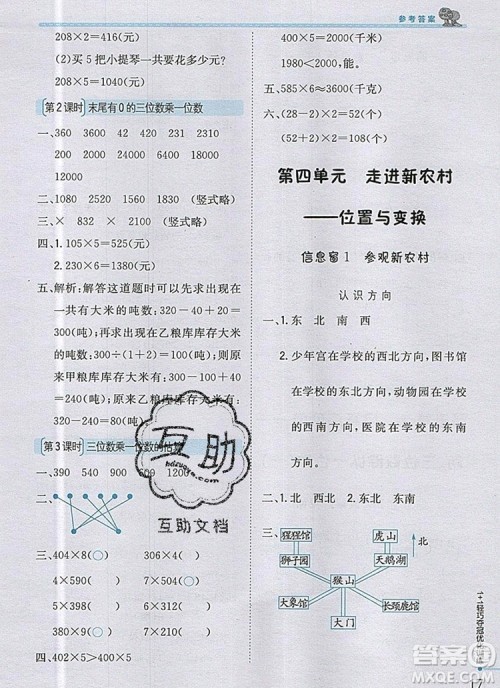 参考答案
208×2=416(元)
(2)买5把小提琴一共要花多少元?
208×5=1040(元)
第2课时 末尾有0的三位数乘一位数
一、360 3600 42 420 2310
1200 1200 4800 2100 6000
二、1080 2920 4320 5950 1820
1480 2150 4850 (竖式略)
三、× 832 × 2100 (竖式略)
四、1.105×5=525(元)
2.230×6=1380(元)
五、解析:解答这道题时可以先求出现在
一共有大米的吨数:320-40=280
(吨);再求出现在乙粮库库存大米
的吨数:
280÷(1+1)=140(吨);则原
来甲粮库库存大米的吨数:
320-240=80(吨)
第3课时 三位数乘一位数的估算
一、390 540 900
二、
三、404×8(○) 306×4( )
4×590( ) 7×504(○)
5×398( ) 6×289( )
380×9(○) 5×910( )
四、402×5>400×5
400×5=2000(千米)
1980<2000,能。
五、585×6≈3600(元)
六、(28-2)×2=52(元)
(52+2)×2=108(元)
第四单元 走进新农村
——位置与变换
信息窗1 参观新农村
认识方向
一、1.东 北 南 西
2.少年宫在学校的西北方向,图书馆
在学校的东北方向,动物园在学校
的西南方向,医院在学校的东南
方向。
二、1.西北 西南 东北 东南
2.
猩猩馆 虎山 北
狮子园 天鹅湖
猴山
大象馆 长颈鹿馆
大门
互助
hdzuoye.com
互助文档
1+1轻巧夺冠优化训练
17
MXQE.COM